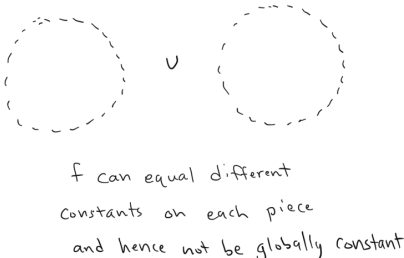 ∪
f can equal different
constants on each piece
and hence not be globally constant